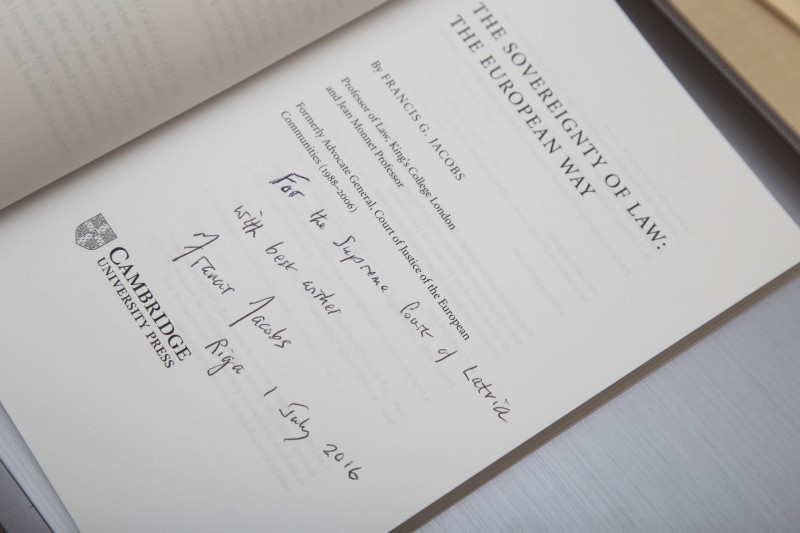 THE SOVEREIGNTY OF LAW:
THE EUROPEAN WAY
By FRANCIS G. JACOBS
Professor of Law, King's College London
and Jean Monnet Professor
Formerly Advocate General, Court of Justice of the European
Communities (1988–2006)
For the Supreme Court of Latvia
with best wishes
Francis Jacobs
Riga 1 July 2016
CAMBRIDGE
UNIVERSITY PRESS